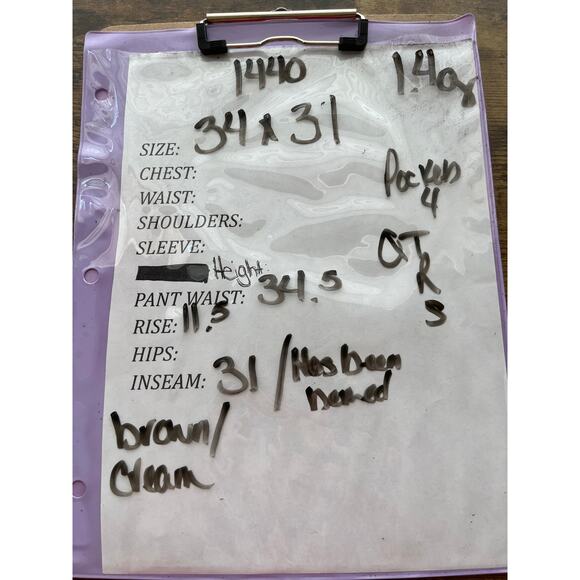 1440
14oz
SIZE: 34 x 31
CHEST:
Pockets
4
WAIST:
SHOULDERS:
SLEEVE:
QTR
S
Height:
PANT WAIST: 34.5
RISE: 11.5
HIPS:
INSEAM: 31 / Has been
hemed
brown/
cream